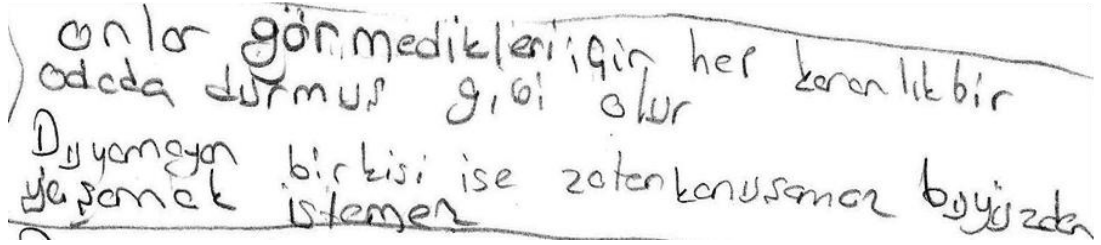 onlar görmedikleri için her karanlık bir
odada durmuş gibi olur
Duyamayan bir kişi ise zaten konuşamaz buyüzden
yaşamak istemez